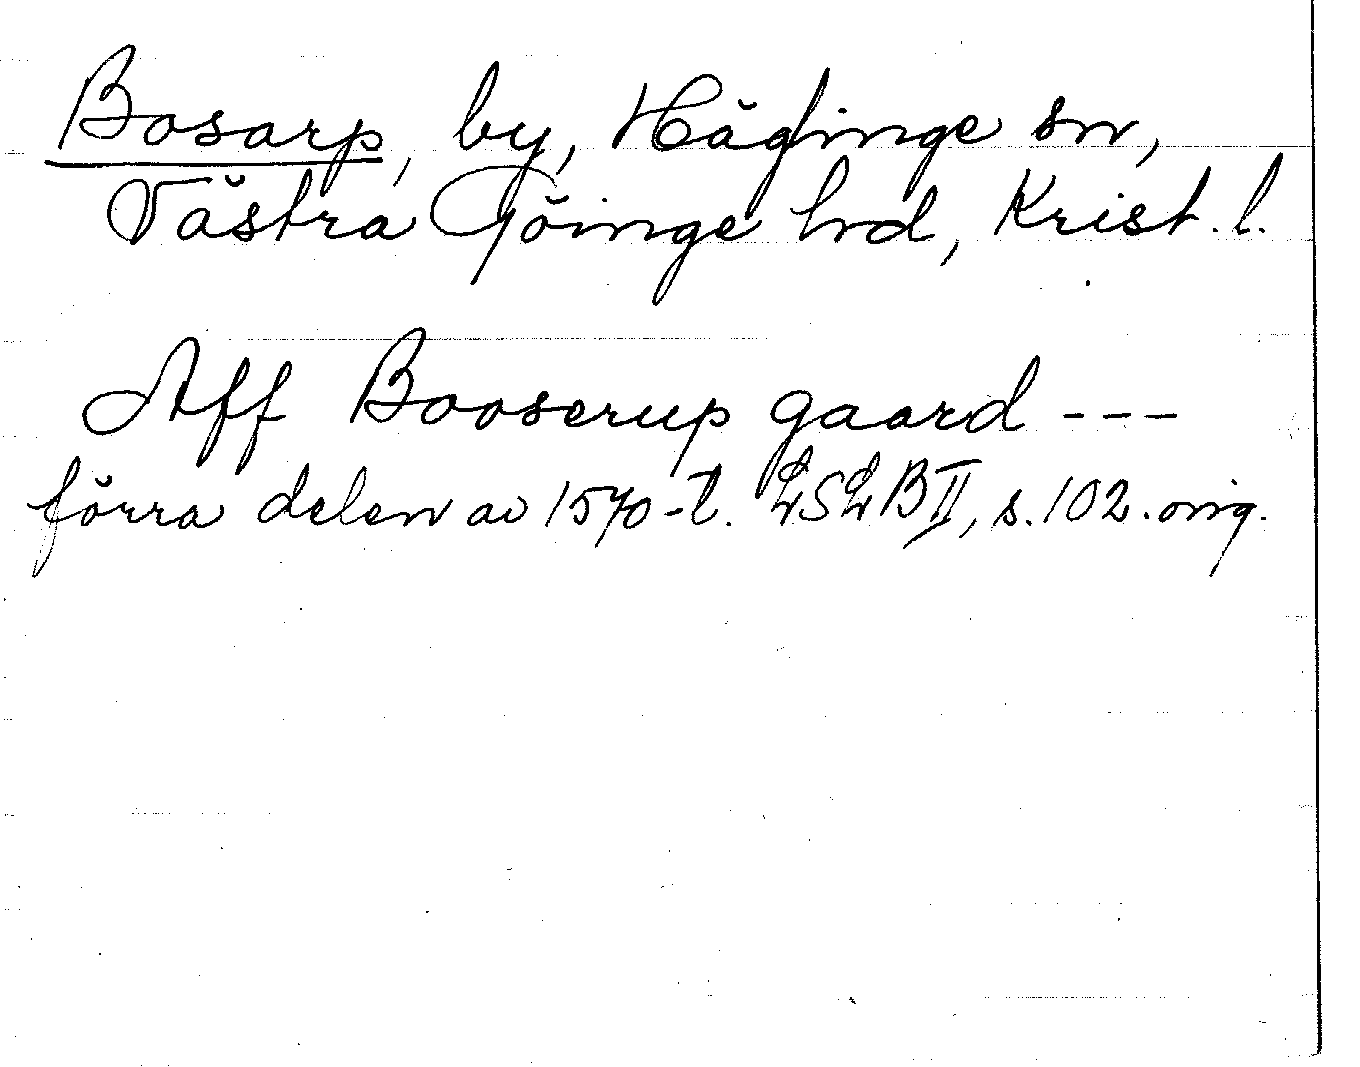 Bosarp, by, Häglinge sn,
Västra Göinge hrd, Krist. l.
Aff Booserup gaard ---
förra delen av 1570-t. LSLB II, s. 102. orig.